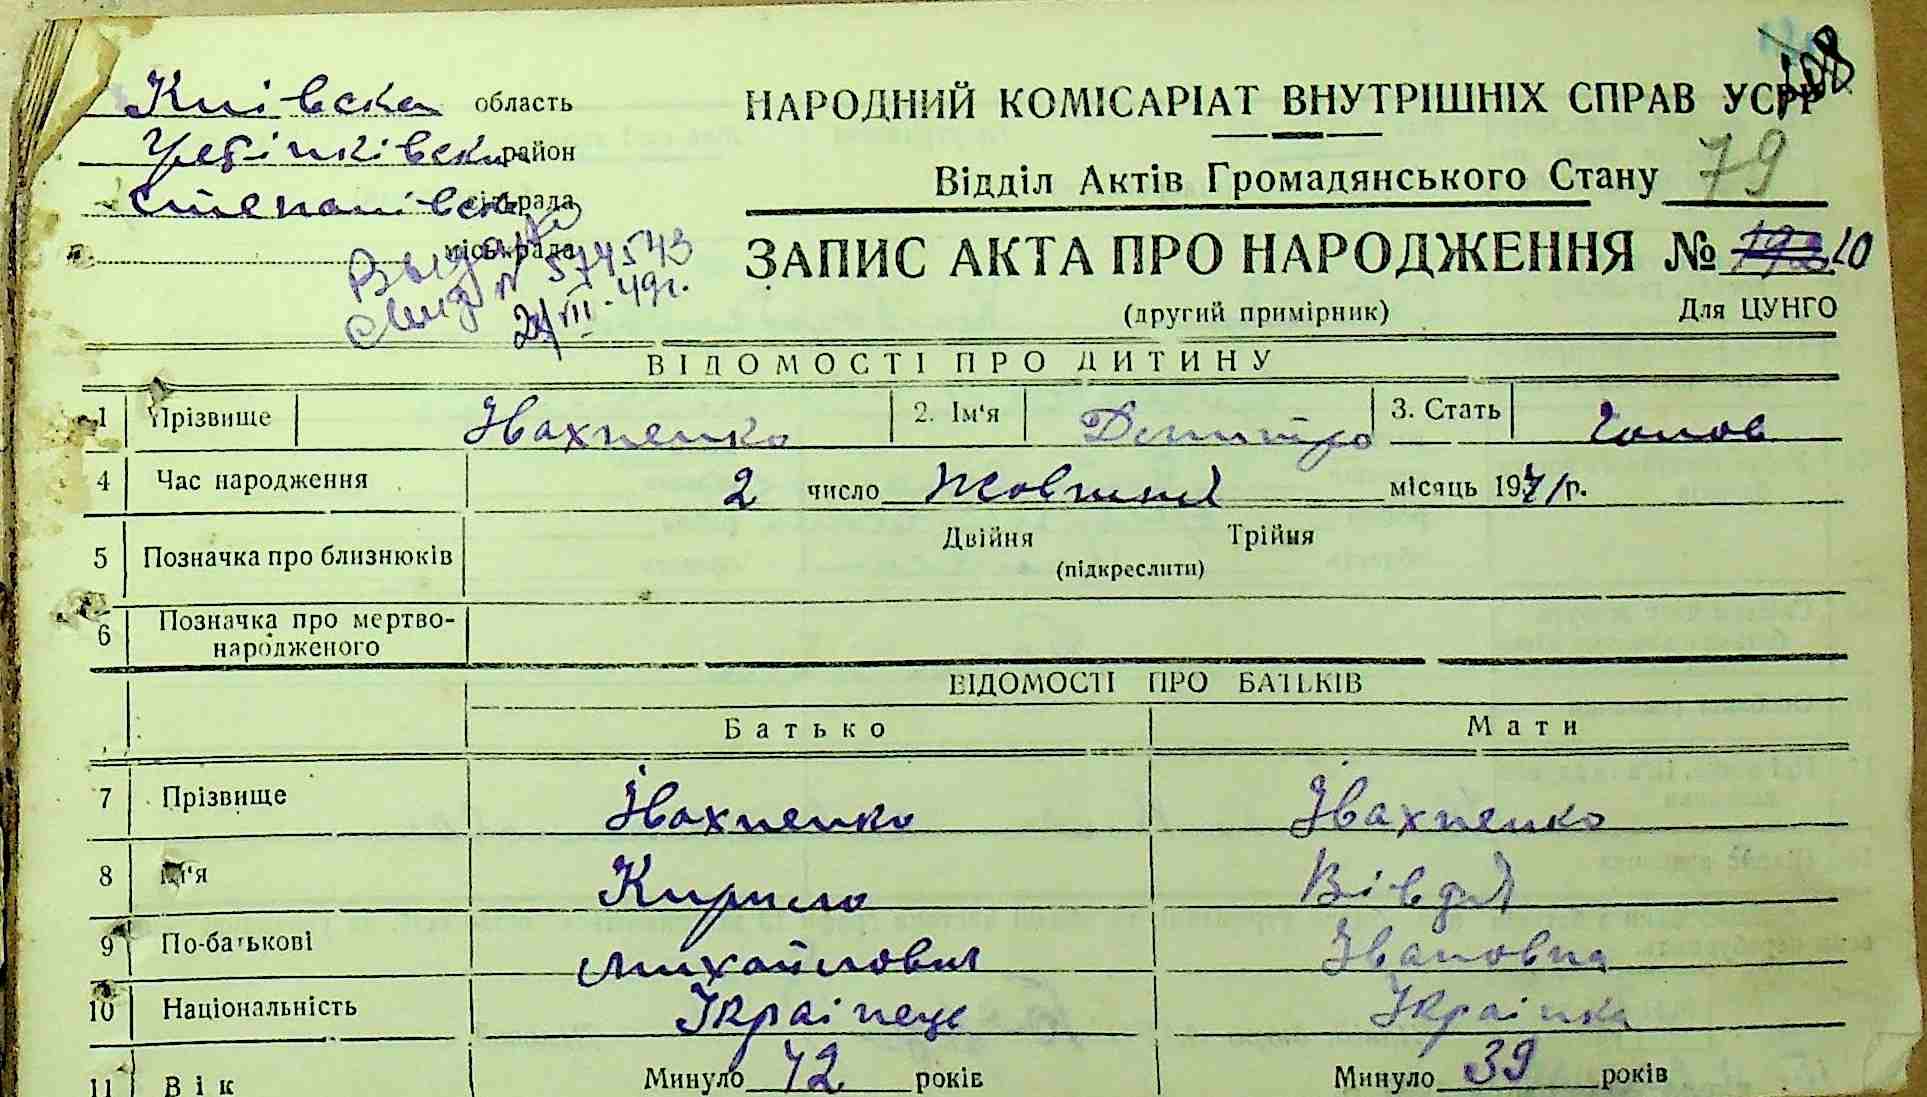 Київська область
Гребінківський район
Степанівська сільрада
міськрада
108
НАРОДНИЙ КОМІСАРІАТ ВНУТРІШНІХ СПРАВ УСРР
Відділ Актів Громадянського Стану 79
ЗАПИС АКТА ПРО НАРОДЖЕННЯ № 10
(другий примірник) Для ЦУНГО
Выдано
свид № 574543
21/III-49г.
ВІДОМОСТІ ПРО ДИТИНУ
1 Прізвище Івахненко 2. Ім'я Дмитро 3. Стать Чолов
4 Час народження 2 число Жовтня місяць 1941 р.
5 Позначка про близнюків Двійня Трійня
(підкреслити)
6 Позначка про мертво-
народженого
ВІДОМОСТІ ПРО БАТЬКІВ
Батько Мати
7 Прізвище Івахненко Івахненко
8 Ім'я Кирило Вівдя
9 По-батькові Михайлович Івановна
10 Національність Украінець Украінка
11 Вік Минуло 42 років Минуло 39 років